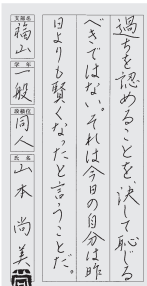 過ちを認めることを決して恥じる
べきではない。それは今日の自分は昨
日よりも賢くなったと言うことだ。
支部名 福山
学年 一般
段級位 同人
氏名 山本尚美